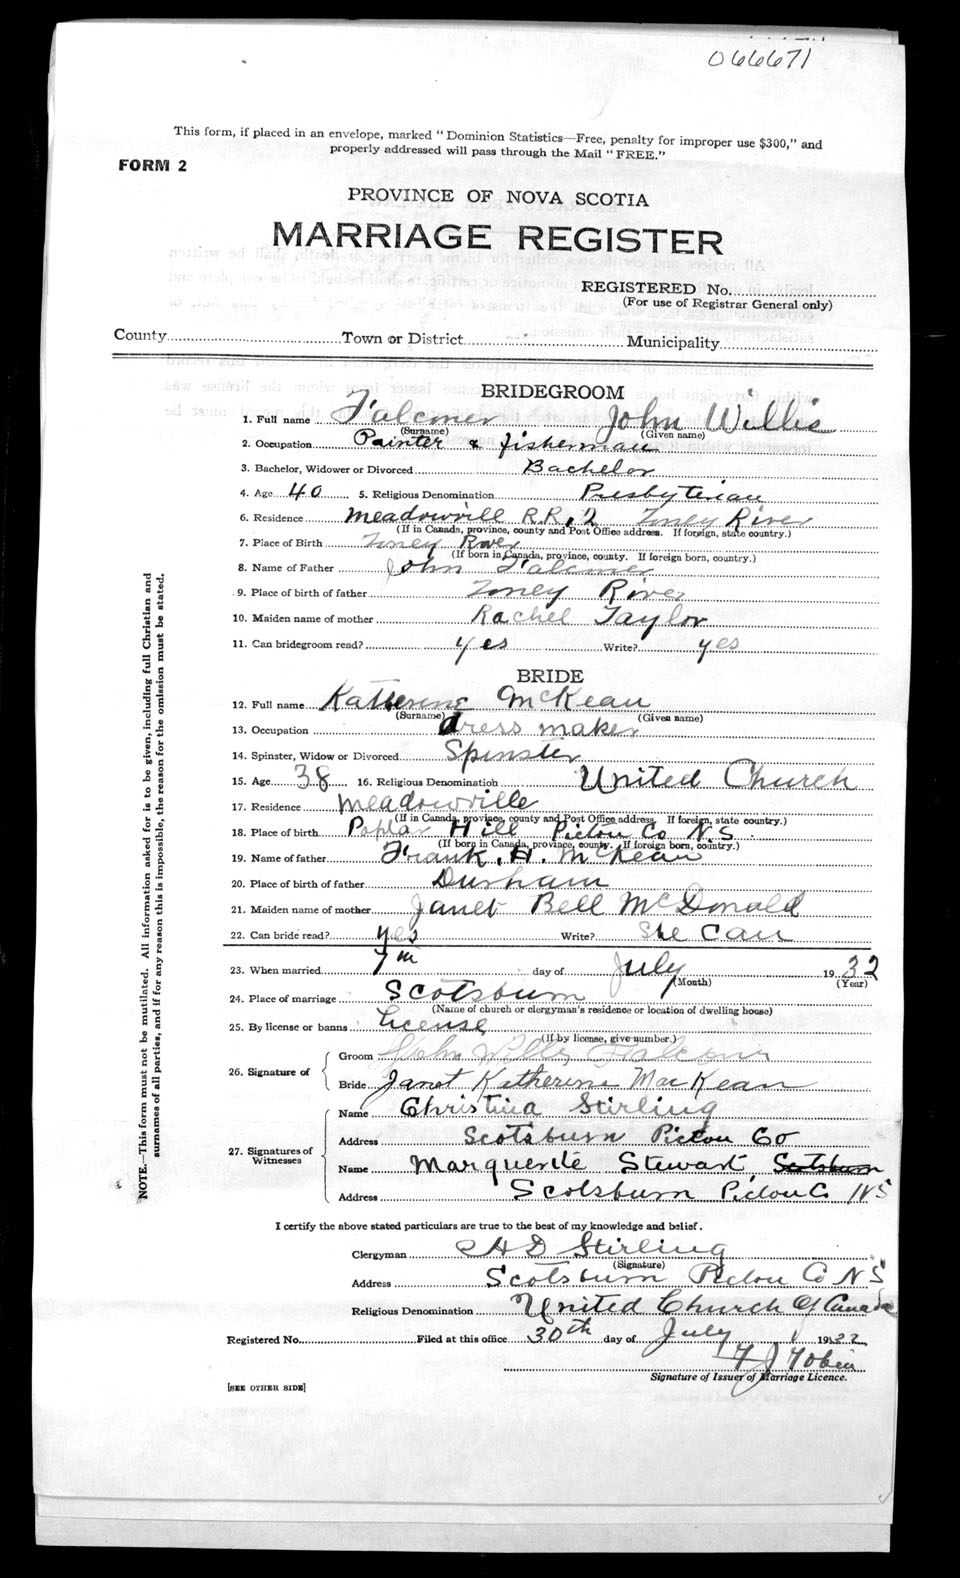 066671
This form, if placed in an envelope, marked "Dominion Statistics—Free, penalty for improper use $300," and
properly addressed will pass through the Mail "FREE."
FORM 2
PROVINCE OF NOVA SCOTIA
MARRIAGE REGISTER
REGISTERED No.
(For use of Registrar General only)
County Town or District Municipality
BRIDEGROOM
1. Full name Falconer John Willis
(Surname) (Given name)
2. Occupation Painter & fisherman
3. Bachelor, Widower or Divorced Bachelor
4. Age 40 5. Religious Denomination Presbyterian
6. Residence Meadowvill R.R. 2 Toney River
(If in Canada, province, county and Post Office address. If foreign, state country.)
7. Place of Birth Toney River
(If born in Canada, province, county. If foreign born, country.)
8. Name of Father John Falconer
9. Place of birth of father Toney River
10. Maiden name of mother Rachel Taylor
11. Can bridegroom read? yes Write? yes
BRIDE
12. Full name Katherine McKean
(Surname) (Given name)
13. Occupation dress maker
14. Spinster, Widow or Divorced Spinster
15. Age 38 16. Religious Denomination United Church
17. Residence Meadowville
(If in Canada, province, county and Post Office address. If foreign, state country.)
18. Place of birth Poplar Hill Pictou Co N.S.
(If born in Canada, province, county. If foreign born, country.)
19. Name of father Frank. H. McKean
20. Place of birth of father Durham
21. Maiden name of mother Janet Bell McDonald
22. Can bride read? yes Write? She Can
23. When married 7th day of July 1932
(Month) (Year)
24. Place of marriage Scotsburn
(Name of church or clergyman's residence or location of dwelling house)
25. By license or banns License
(If by license, give number.)
26. Signature of
Groom John Willis Falconer
Bride Janet Katherine MacKean
27. Signatures of Witnesses
Name Christina Stirling
Address Scotsburn Pictou Co
Name Marguerite Stewart, Scotsburn
Address Scotsburn Pictou Co NS
I certify the above stated particulars are true to the best of my knowledge and belief.
Clergyman A D Stirling
(Signature)
Address Scotsburn Pictou Co NS
Religious Denomination United Church Of Canada
Registered No. Filed at this office 30th day of July 1932
J Tobin
Signature of Issuer of Marriage Licence.
[SEE OTHER SIDE]
NOTE.—This form must not be mutilated. All information asked for is to be given, including full Christian and
surnames of all parties, and if for any reason this is impossible, the reason for the omission must be stated.